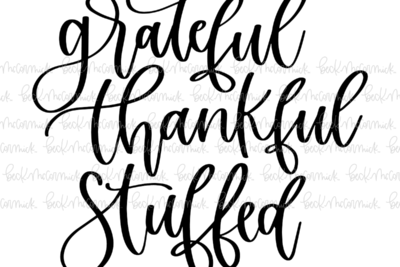 grateful
thankful
stuffed